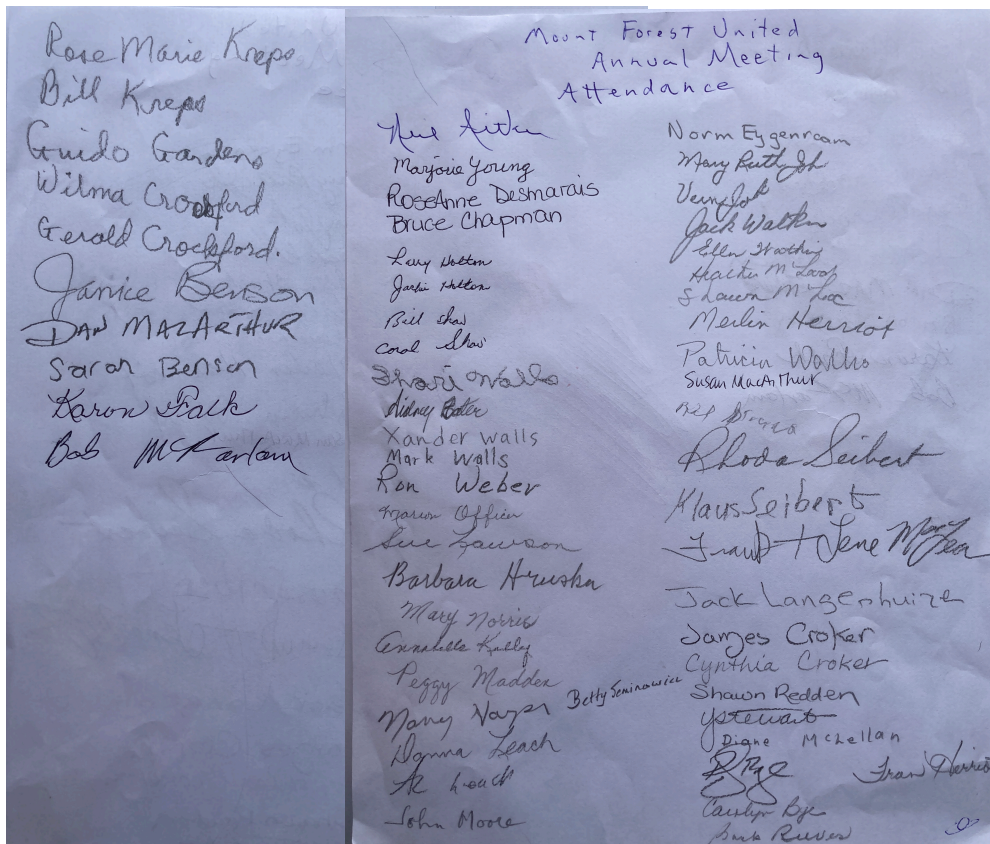 Rose Marie Kreps
Bill Kreps
Guido Gardens
Wilma Crockford
Gerald Crockford.
Janice Benson
DAN MACARTHUR
Sarah Benson
Karon Falk
Bob
Mount Forest United
Annual Meeting
Attendance
Neil Aitken
Marjorie Young
RoseAnne Desmarais
Bruce Chapman
Larry Hutton
Hutton
Bill Shaw
Coral Shaw
Shari Walls
Sidney
Xander Walls
Mark Walls
Ron Weber
Marion Officer
Sue Lawson
Barbara Hruska
Mary Norris
Annabelle Kelly
Peggy Madden
Betty Seminowicz
Donna Leach
Al Leach
John Moore
Norm Eygenraam
Mary Ruth
Vern
Jack Watkin
Ellen
Heather
Shawn
Merlin Herriot
Patricia Walks
Susan MacArthur
Rhoda Seibert
Klaus Seibert
Jack Langenhuize
James Croker
Cynthia Croker
Shawn Redden
YStewart
Diane McLellan
Fran
Carolyn Bye
Barb Reeves